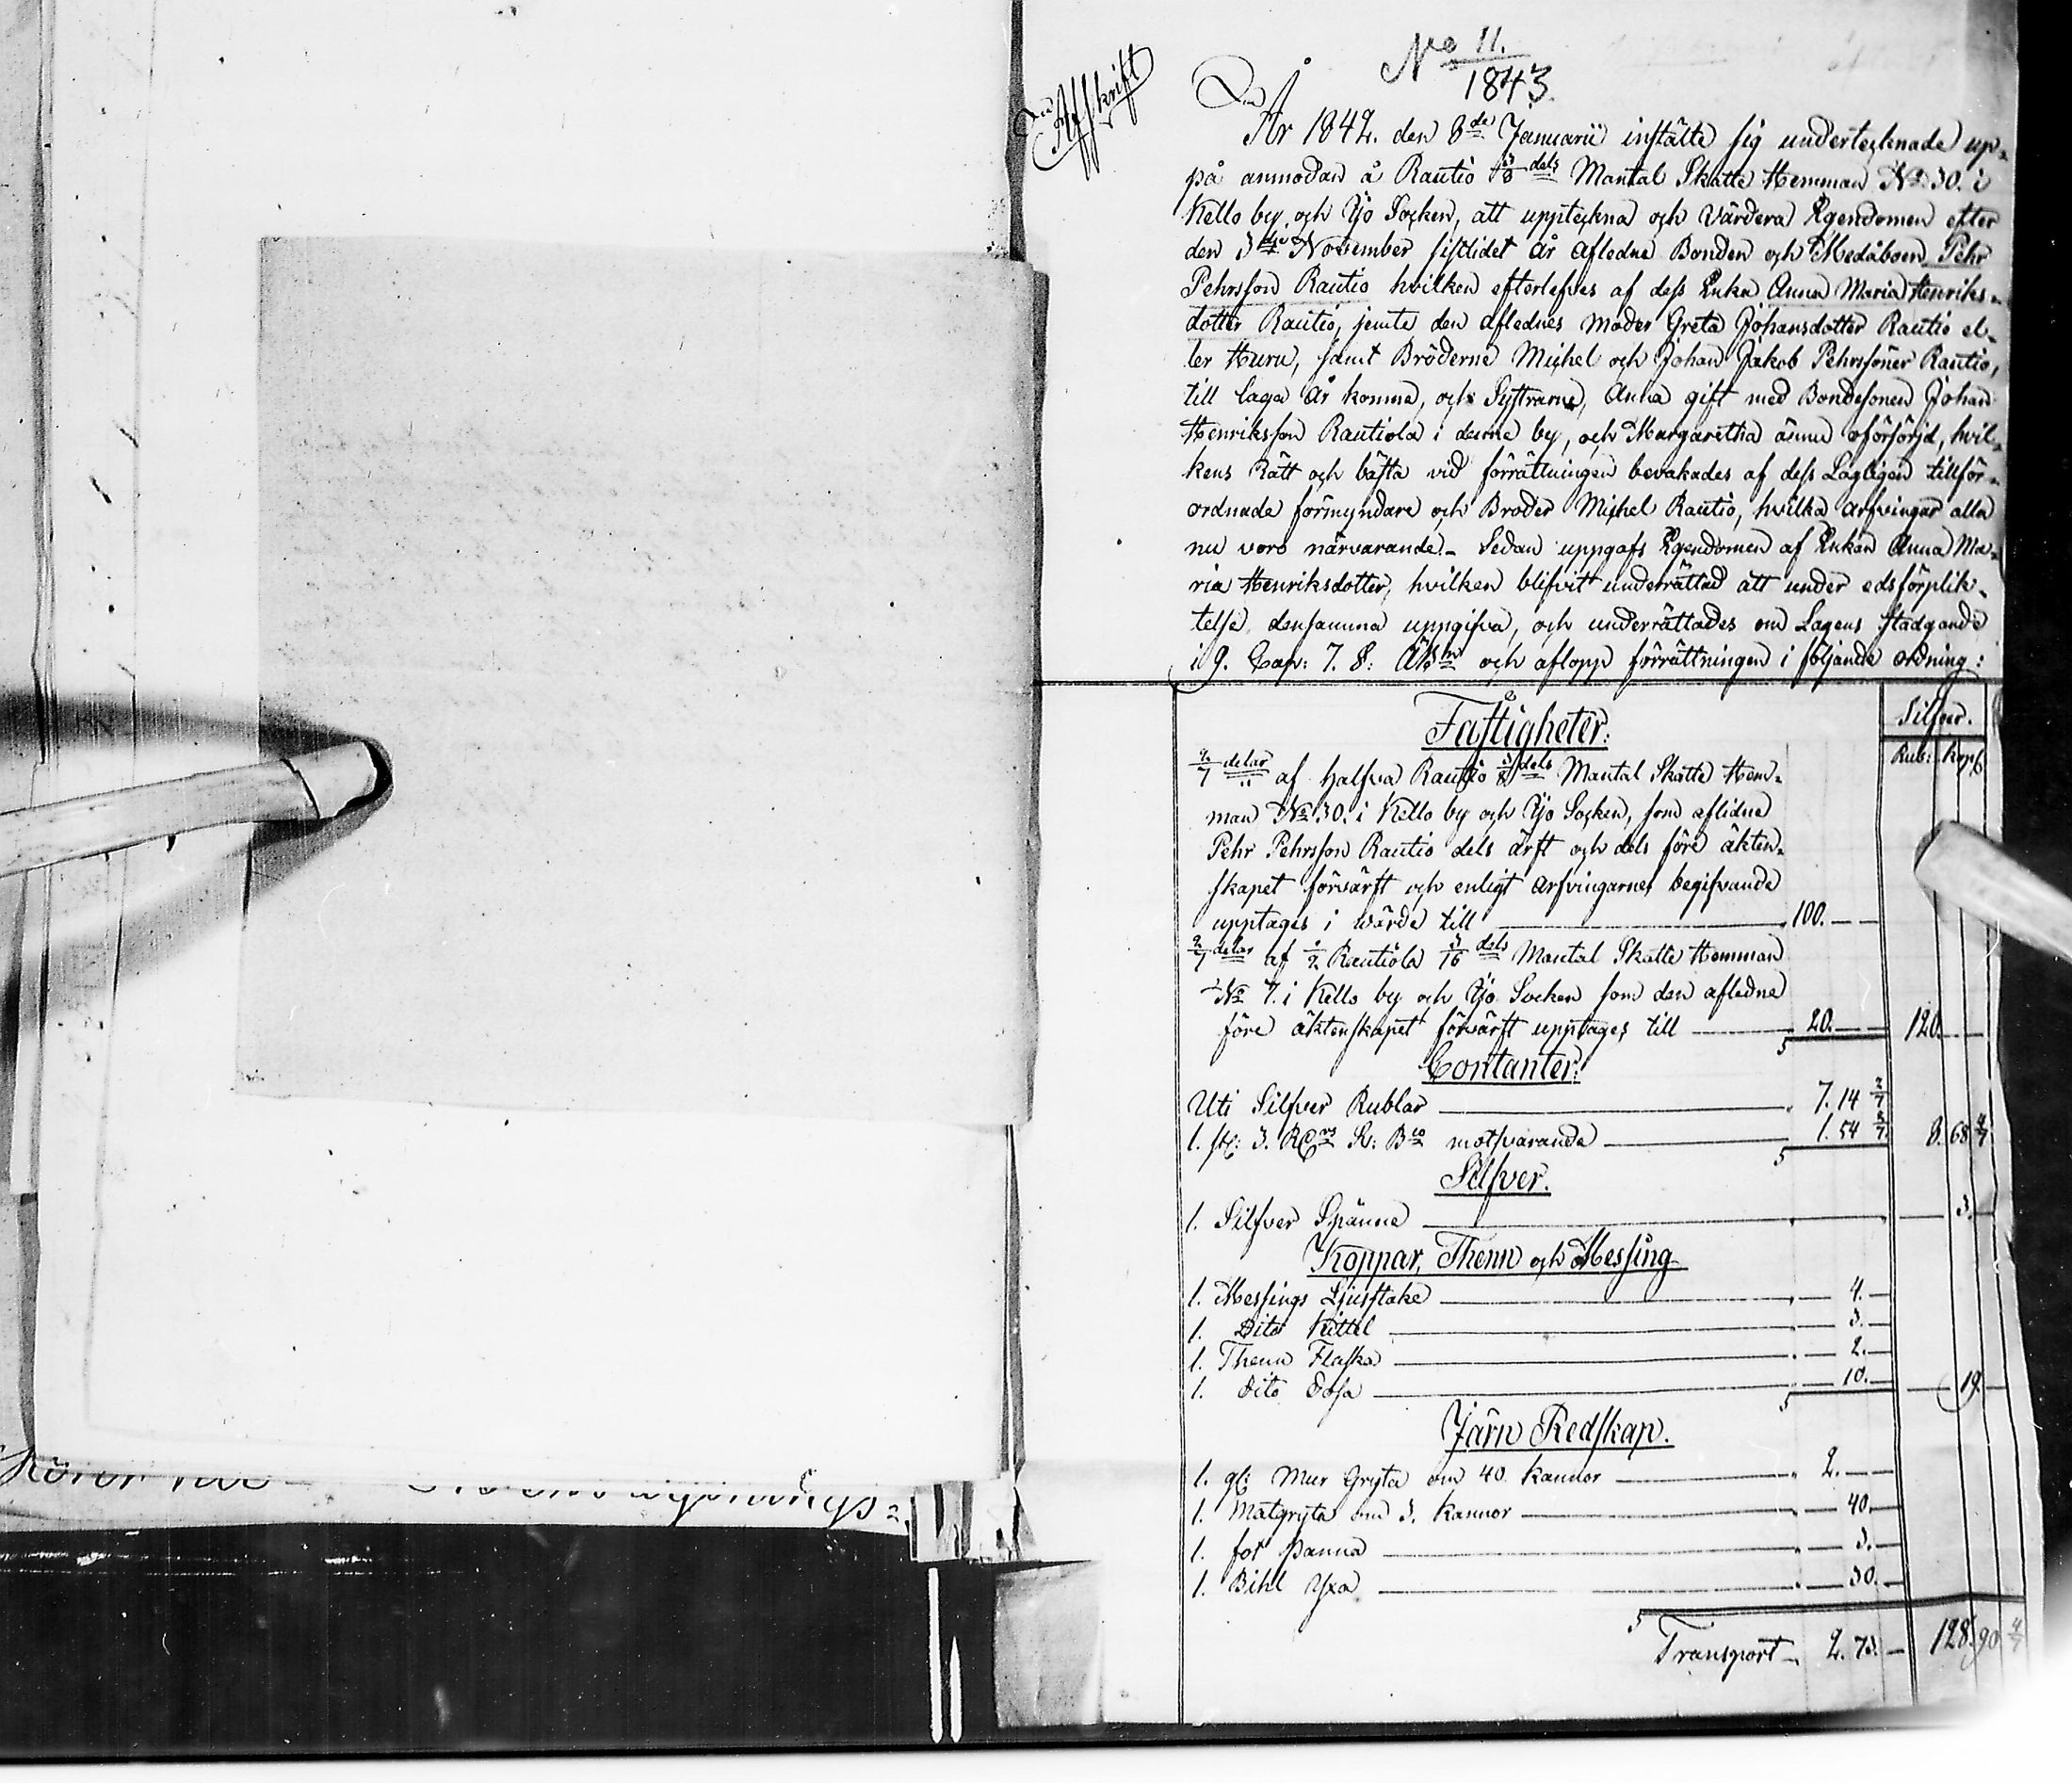 No 11.
1843.
Afskrift
År 1842. den 8de Januarii instälte sig undertecknade up-
på anmodan å Rautio 3/8 dels Mantal Skatte Hemman No 30. i
Kello by och Ijo Socken, att uppteckna och värdera Egendomen efter
den 3dje November sistlidet år afledne Bonden och Medåboen Pehr
Pehrsson Rautio hvilken efterlefves af dess Enka Anna Maria Henriks-
dotter Rautio, jemte den aflednes moder Greta Johansdotter Rautio el-
ler Huru, samt Bröderne Michel och Johan Jakob Pehrssöner Rautio,
till laga år komne, och Systrarne, Anna gift med Bondesonen Johan
Henriksson Rautiola i denne by, och Margaretha ännu oförsörjd, hvil-
kens Rätt och bästa vid förrättningen bevakades af dess Lagligen tillför-
ordnade förmyndare och Broder Michel Rautio, hvilka arfvingar alla
nu voro närvarande. Sedan uppgafs Egendomen af Enkan Anna Ma-
ria Henriksdotter, hvilken blifvit underrättad att under edsförplik-
telse densamma uppgifva, och underrättades om Lagens stadgande
i 9. Cap: 7. 8: ÄB och aflopp förrättningen i följande ordning:
Fastigheter: Silfver.
Rub: Kop:
2/7 delar af halfva Rautio 3/8 dels Mantal Skatte Hem-
man No 30. i Kello by och Ijo Socken, som aflidne
Pehr Pehrsson Rautio dels ärft och dels före äkten-
skapet förvärft och enligt arfvingarnes begifvande
upptages i wärde till 100. —
2/7 delar af 1/2 Rautiola 3/16 dels Mantal Skatte Hemman
No 7. i Kello by och Ijo Socken som den afledne
före äktenskapet förvärft upptages till 20. — 120. —
Contanter:
Uti Silfver Rublar 7. 14 2/7
1. st: 3. RDrs Sv: Bco motsvarande 1. 54 2/7 8. 68 4/7
Silfver.
1. Silfver Spänne — 3. —
Koppar, Thenn och Messing
1. Messings Ljusstake — 4. —
1. Dito Kittel — 3. —
1. Thenn Flaska — 2. —
1. dito dosa — 10. — — 19. —
Järn Redskap.
1. gl: Mur Gryta om 40. kannor 2. —
1. Matgryta om 3. kannor — 40. —
1. fot panna — 3. —
1. Bihl Yxa — 30. —
Transport 2. 73. — 128. 90 4/7